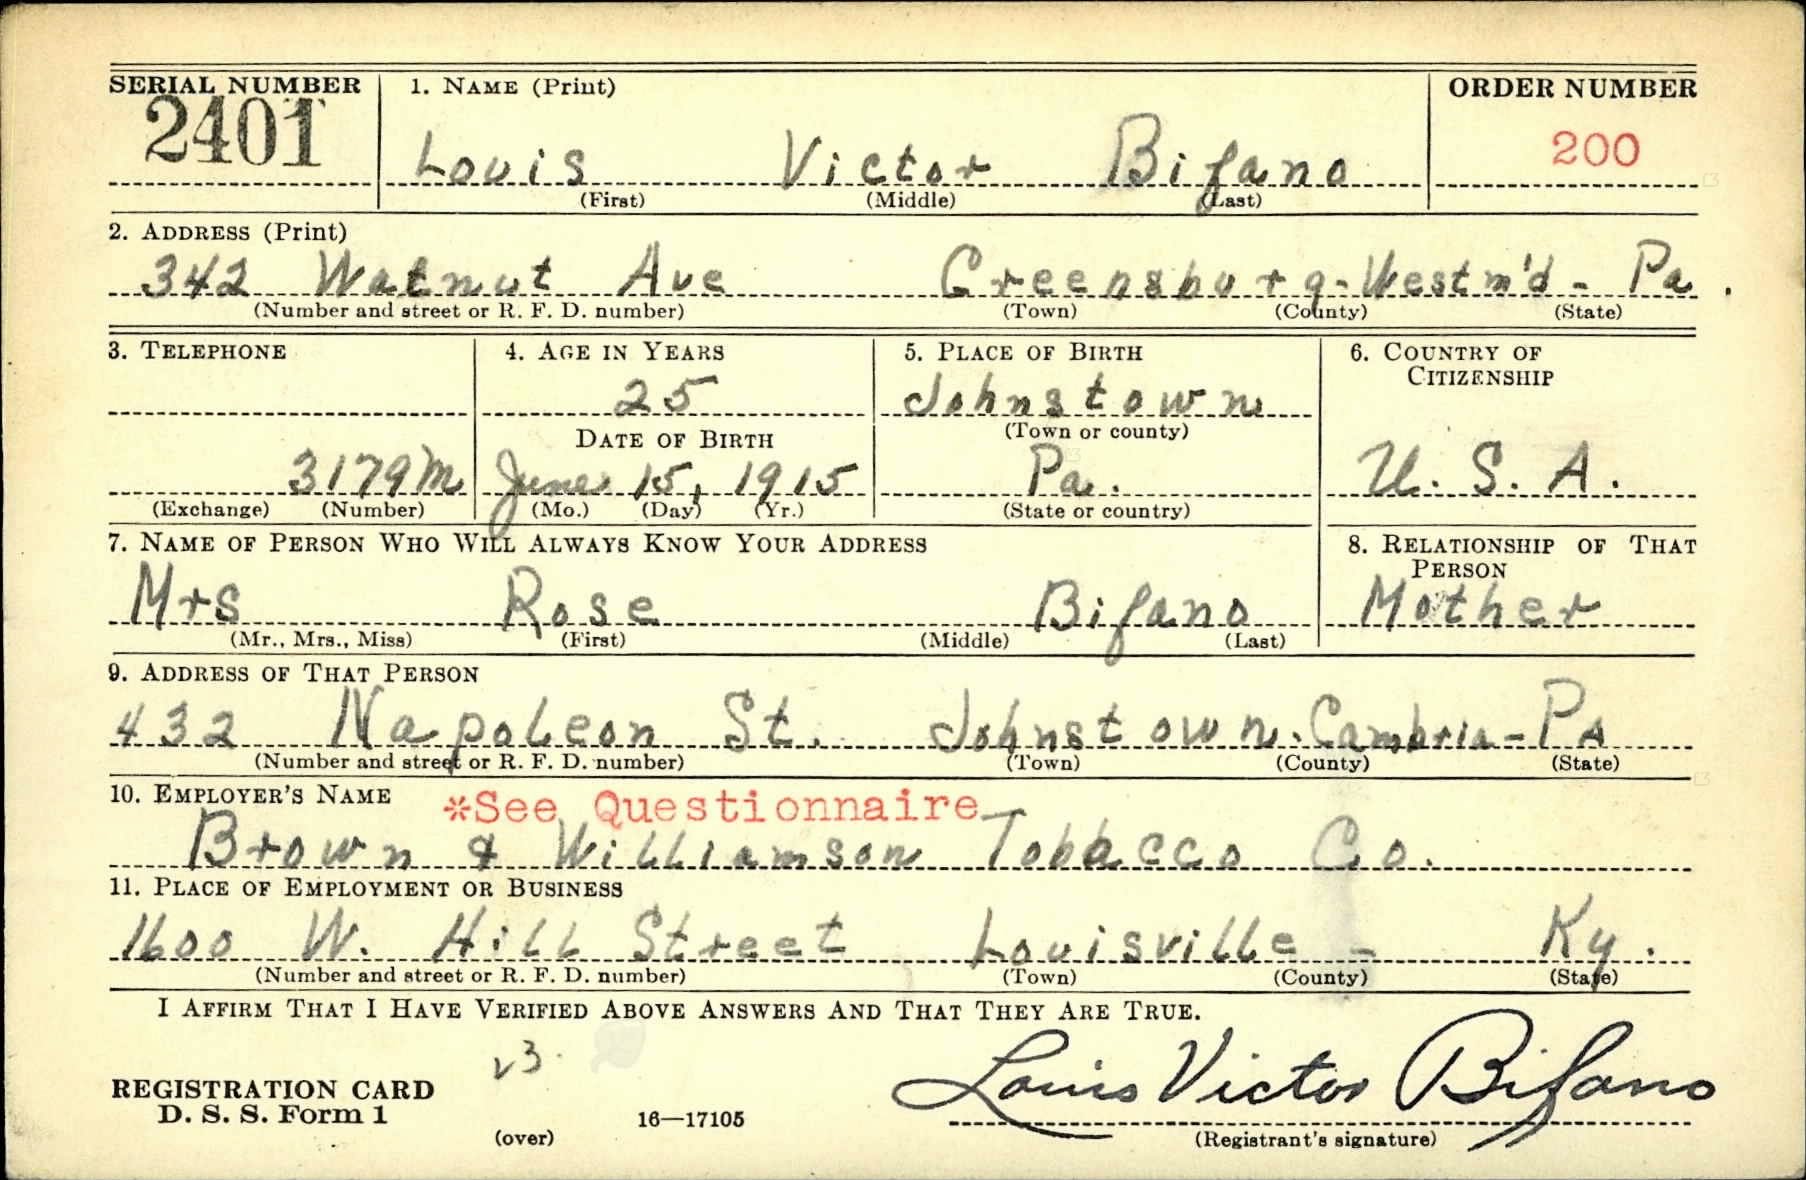 SERIAL NUMBER 1. NAME (Print) ORDER NUMBER
2401 Louis Victor Bifano 200
(First) (Middle) (Last)
2. ADDRESS (Print)
342 Walnut Ave Greensburg-Westm'd - Pa.
(Number and street or R. F. D. number) (Town) (County) (State)
3. TELEPHONE 4. AGE IN YEARS 5. PLACE OF BIRTH 6. COUNTRY OF
CITIZENSHIP
25 Johnstown
DATE OF BIRTH (Town or county)
3179M June 15, 1915 Pa. U. S. A.
(Exchange) (Number) (Mo.) (Day) (Yr.) (State or country)
7. NAME OF PERSON WHO WILL ALWAYS KNOW YOUR ADDRESS 8. RELATIONSHIP OF THAT
PERSON
Mrs Rose Bifano Mother
(Mr., Mrs., Miss) (First) (Middle) (Last)
9. ADDRESS OF THAT PERSON
432 Napoleon St. Johnstown. Cambria - Pa
(Number and street or R. F. D. number) (Town) (County) (State)
10. EMPLOYER'S NAME *See Questionnaire
Brown & Williamson Tobacco Co.
11. PLACE OF EMPLOYMENT OR BUSINESS
1600 W. Hill Street Louisville - Ky.
(Number and street or R. F. D. number) (Town) (County) (State)
I AFFIRM THAT I HAVE VERIFIED ABOVE ANSWERS AND THAT THEY ARE TRUE.
REGISTRATION CARD Louis Victor Bifano
D. S. S. Form 1 16—17105
(over) (Registrant's signature)